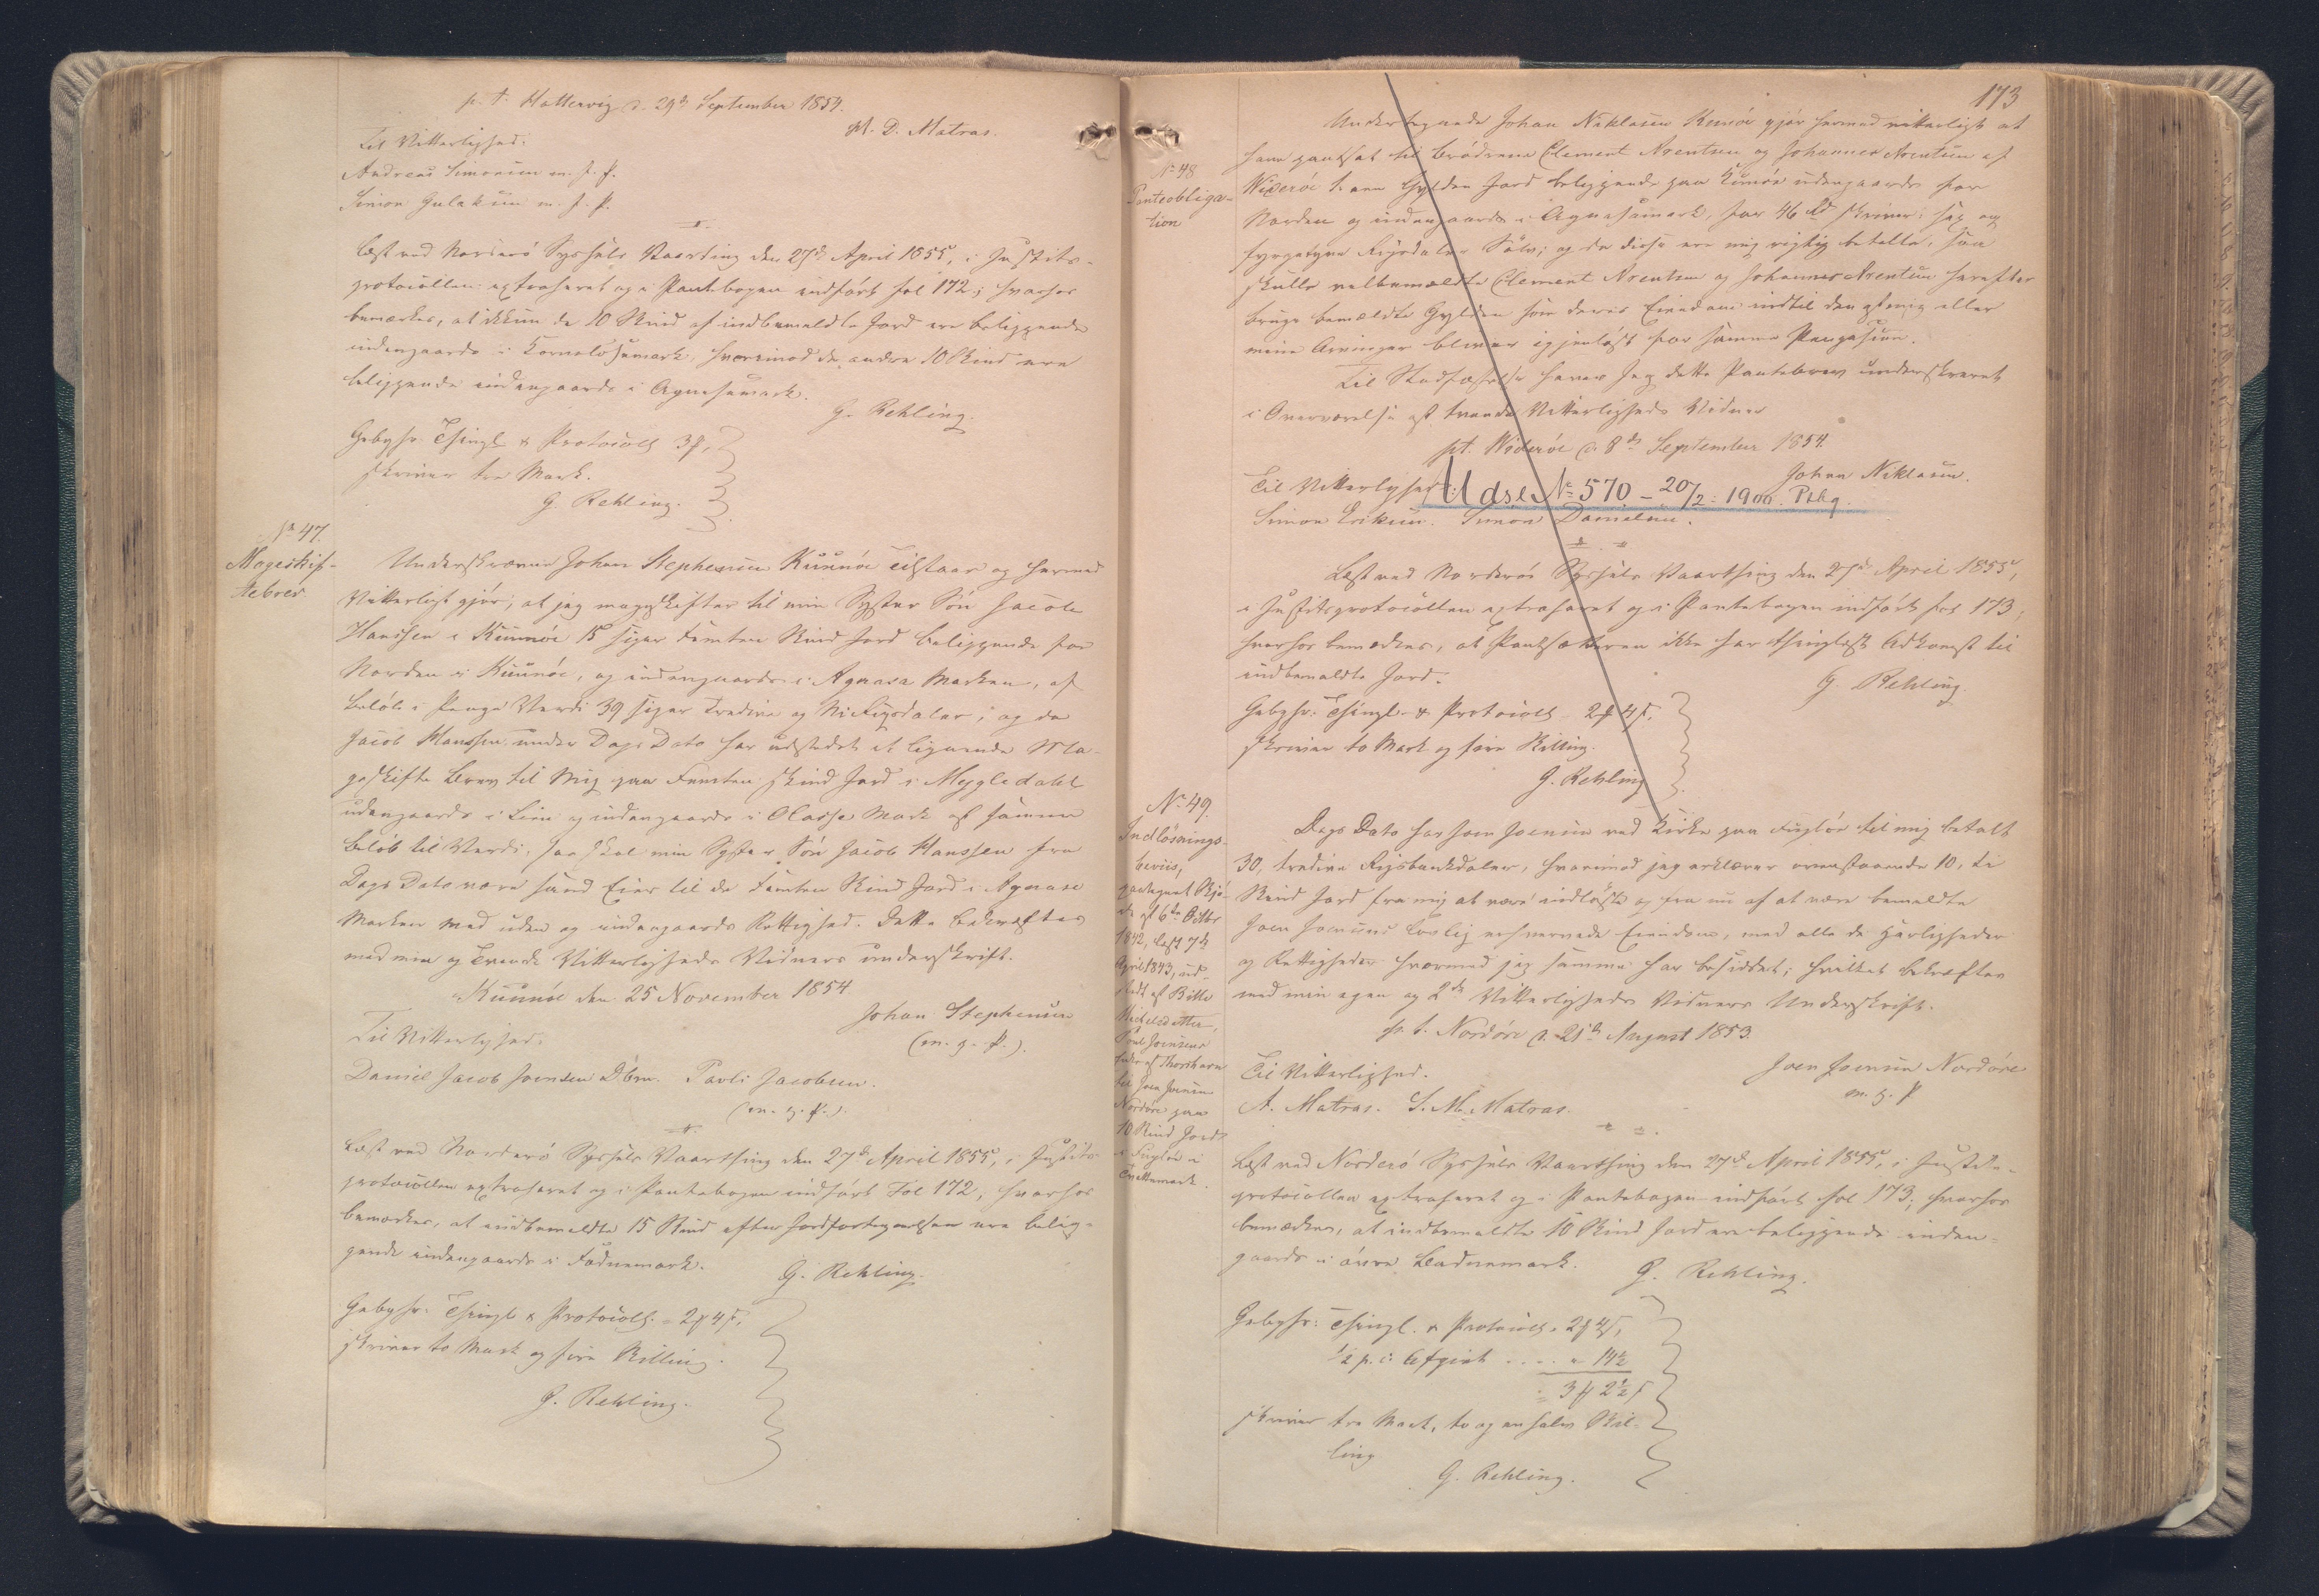 p. t. Hattervig d. 29de September 1854.
M. D. Matras.
Til Vitterlighed:
Andreas Simonsen m. f. P.
Simon Gulaksen m. f. P.
Læst ved Norderø Syssels Vaarting den 27de April 1855, i Justits-
protocollen extraheret og i Pantebogen indført fol 172; hvorhos
bemærkes, at ikkun de 10 Skind af indbemeldte Jord ere beliggende
indengaards i Kornelosumark, hvorimod de andre 10 Skind ere
beliggende indengaards i Agnesumark.
G. Rehling.
Gebyhr: Thingl. & Protocoll 3 ₻,
skriver tre Mark.
G. Rehling.
No 47.
Mageskif-
tebrev.
Underskrevne Johan Stephensen Kunnöe Tilstaar og hermed
Vitterligt gjör, at jeg mageskifter til min Syster Sön Jacob
Hanssen i Kunnöe 15 siger Femten Skind Jord beliggende for
Norden i Kunnöe, og indengaards i Agnasa Marken, af
Belöb i Penge Værdi 39 siger Tredive og Ni Rigsdaler; og da
Jacob Hanssen under Dags Dato har udstedet et lignende Ma-
geskifte Brev til Mig paa Femten Skind Jord i Mygledahl
udengaards i Lien og indengaards i Olasse Mark af samme
Belöb til Værdi, saa skal min Syster Sön Jacob Hanssen fra
Dags Dato være sand Eier til de Femten Skind Jord i Agnase
Marken med uden og indengaards Rettighed. Dette bekræftes
med min og Tvende Vitterligheds Vidners underskrift.
Kunnöe den 25 November 1854
Johan Stephensen
(m. g. P.).
Til Vitterlighed:
Daniel Jacob Joensen Dbm. Pavli Jacobsen.
(m. g. P.).
Læst ved Norderö Syssels Vaarthing den 27de April 1855, i Justits-
protocollen extraheret og i Pantebogen indfört Fol 172, hvorhos
bemærkes, at indbemeldte 15 Skind efter Jordfortegnelsen ere belig-
gende indengaards i Fødnemark.
G. Rehling.
Gebyhr: Thingl. & Protocoll. 2 ₻ 4 s,
skriver to Mark og fire Skilling.
G. Rehling.
173
No 48
Panteobliga-
tion
Undertegnede Johan Niklasen Kunöe gjør hermed vitterligt at
have pantsat til Brödrene Clement Arentsen og Johannes Arentsen af
Wideröe 1. een Gylden Jord beliggende paa Kunöe udengaards for
Norden og indengaards i Agnasumark, for 46 Rd skriver: sex og
fyrgetyve Rigsdaler Sölv; og da disse ere mig rigtig betalte, saa
skulle velbemældte Clement Arentsen og Johannes Arentsen herefter
bruge bemældte Gylden som deres Eiendom indtil den af mig eller
mine Arvinger bliver igjenlöst for samme Pengesum.
Til Stadfæstelse haver Jeg dette Pantebrev underskrevet
i Overværelse af tvende Vitterligheds Vidner
pt. Wideröe d. 8de September 1854.
Johan Niklasen.
Til Vitterlighed:
Udsl. No 570 - 20/2 1900. Ptbg.
Simon Eriksen. Simon Danielsen.
Læst ved Norderöe Syssels Vaarthing den 27de April 1855,
i Justitsprotocollen extraheret og i Pantebogen indfört fol 173;
hvorhos bemærkes, at Pantsætteren ikke har thinglæst Adkomst til
indbemeldte Jord.
G. Rehling.
Gebyhr: Thingl. & Protocoll 2 ₻ 4 s.
skriver to Mark og fire Skilling.
G. Rehling
No 49.
Indlösnings-
beviis,
paategnet Skjö-
de af 6te Octbr
1842, læst 7de
April 1843, ud-
stedt af Bitte
Michelsdatter,
Poul Joensens
Enke af Thorshavn
til Joen Joensen
Nordöre paa
10 Skind Jord
i Fuglöe i
Dags Dato har Joen Joensen ved Kirke paa Fuglöe til mig betalt
30, tredive Rigsbankdaler, hvorimod jeg erklærer ovenstaaende 10, ti
Skind Jord fra mig at være indlöste og fra nu af at være bemeldte
Joen Joensens lovlig erhvervede Eiendom, med alle de Herligheder
og Rettigheder hvormed jeg samme har besiddet; hvilket bekræftes
med min egen og 2de Vitterligheds Vidners Underskrift.
p. t. Nordöre d. 21de August 1853.
Joen Joensen Nordöre
m. g. P
Til Vitterlighed.
A. Matras. S. M. Matras.
Læst ved Norderö Syssels Vaarthing den 27de April 1855, i Justits-
protocollen extraheret og i Pantebogen indfört fol 173; hvorhos
bemærkes, at indbemeldte 10 Skind Jord ere beliggende inden-
gaards i övre Badnemark.
G. Rehling.
Gebyhr: Thingl. & Protocoll. 2 ₻ 4 s,
½ p. c. Afgivt .... " 14½
3 ₻ 2½ s
skriver tre Mark, to og en halv Skil-
ling
G. Rehling.